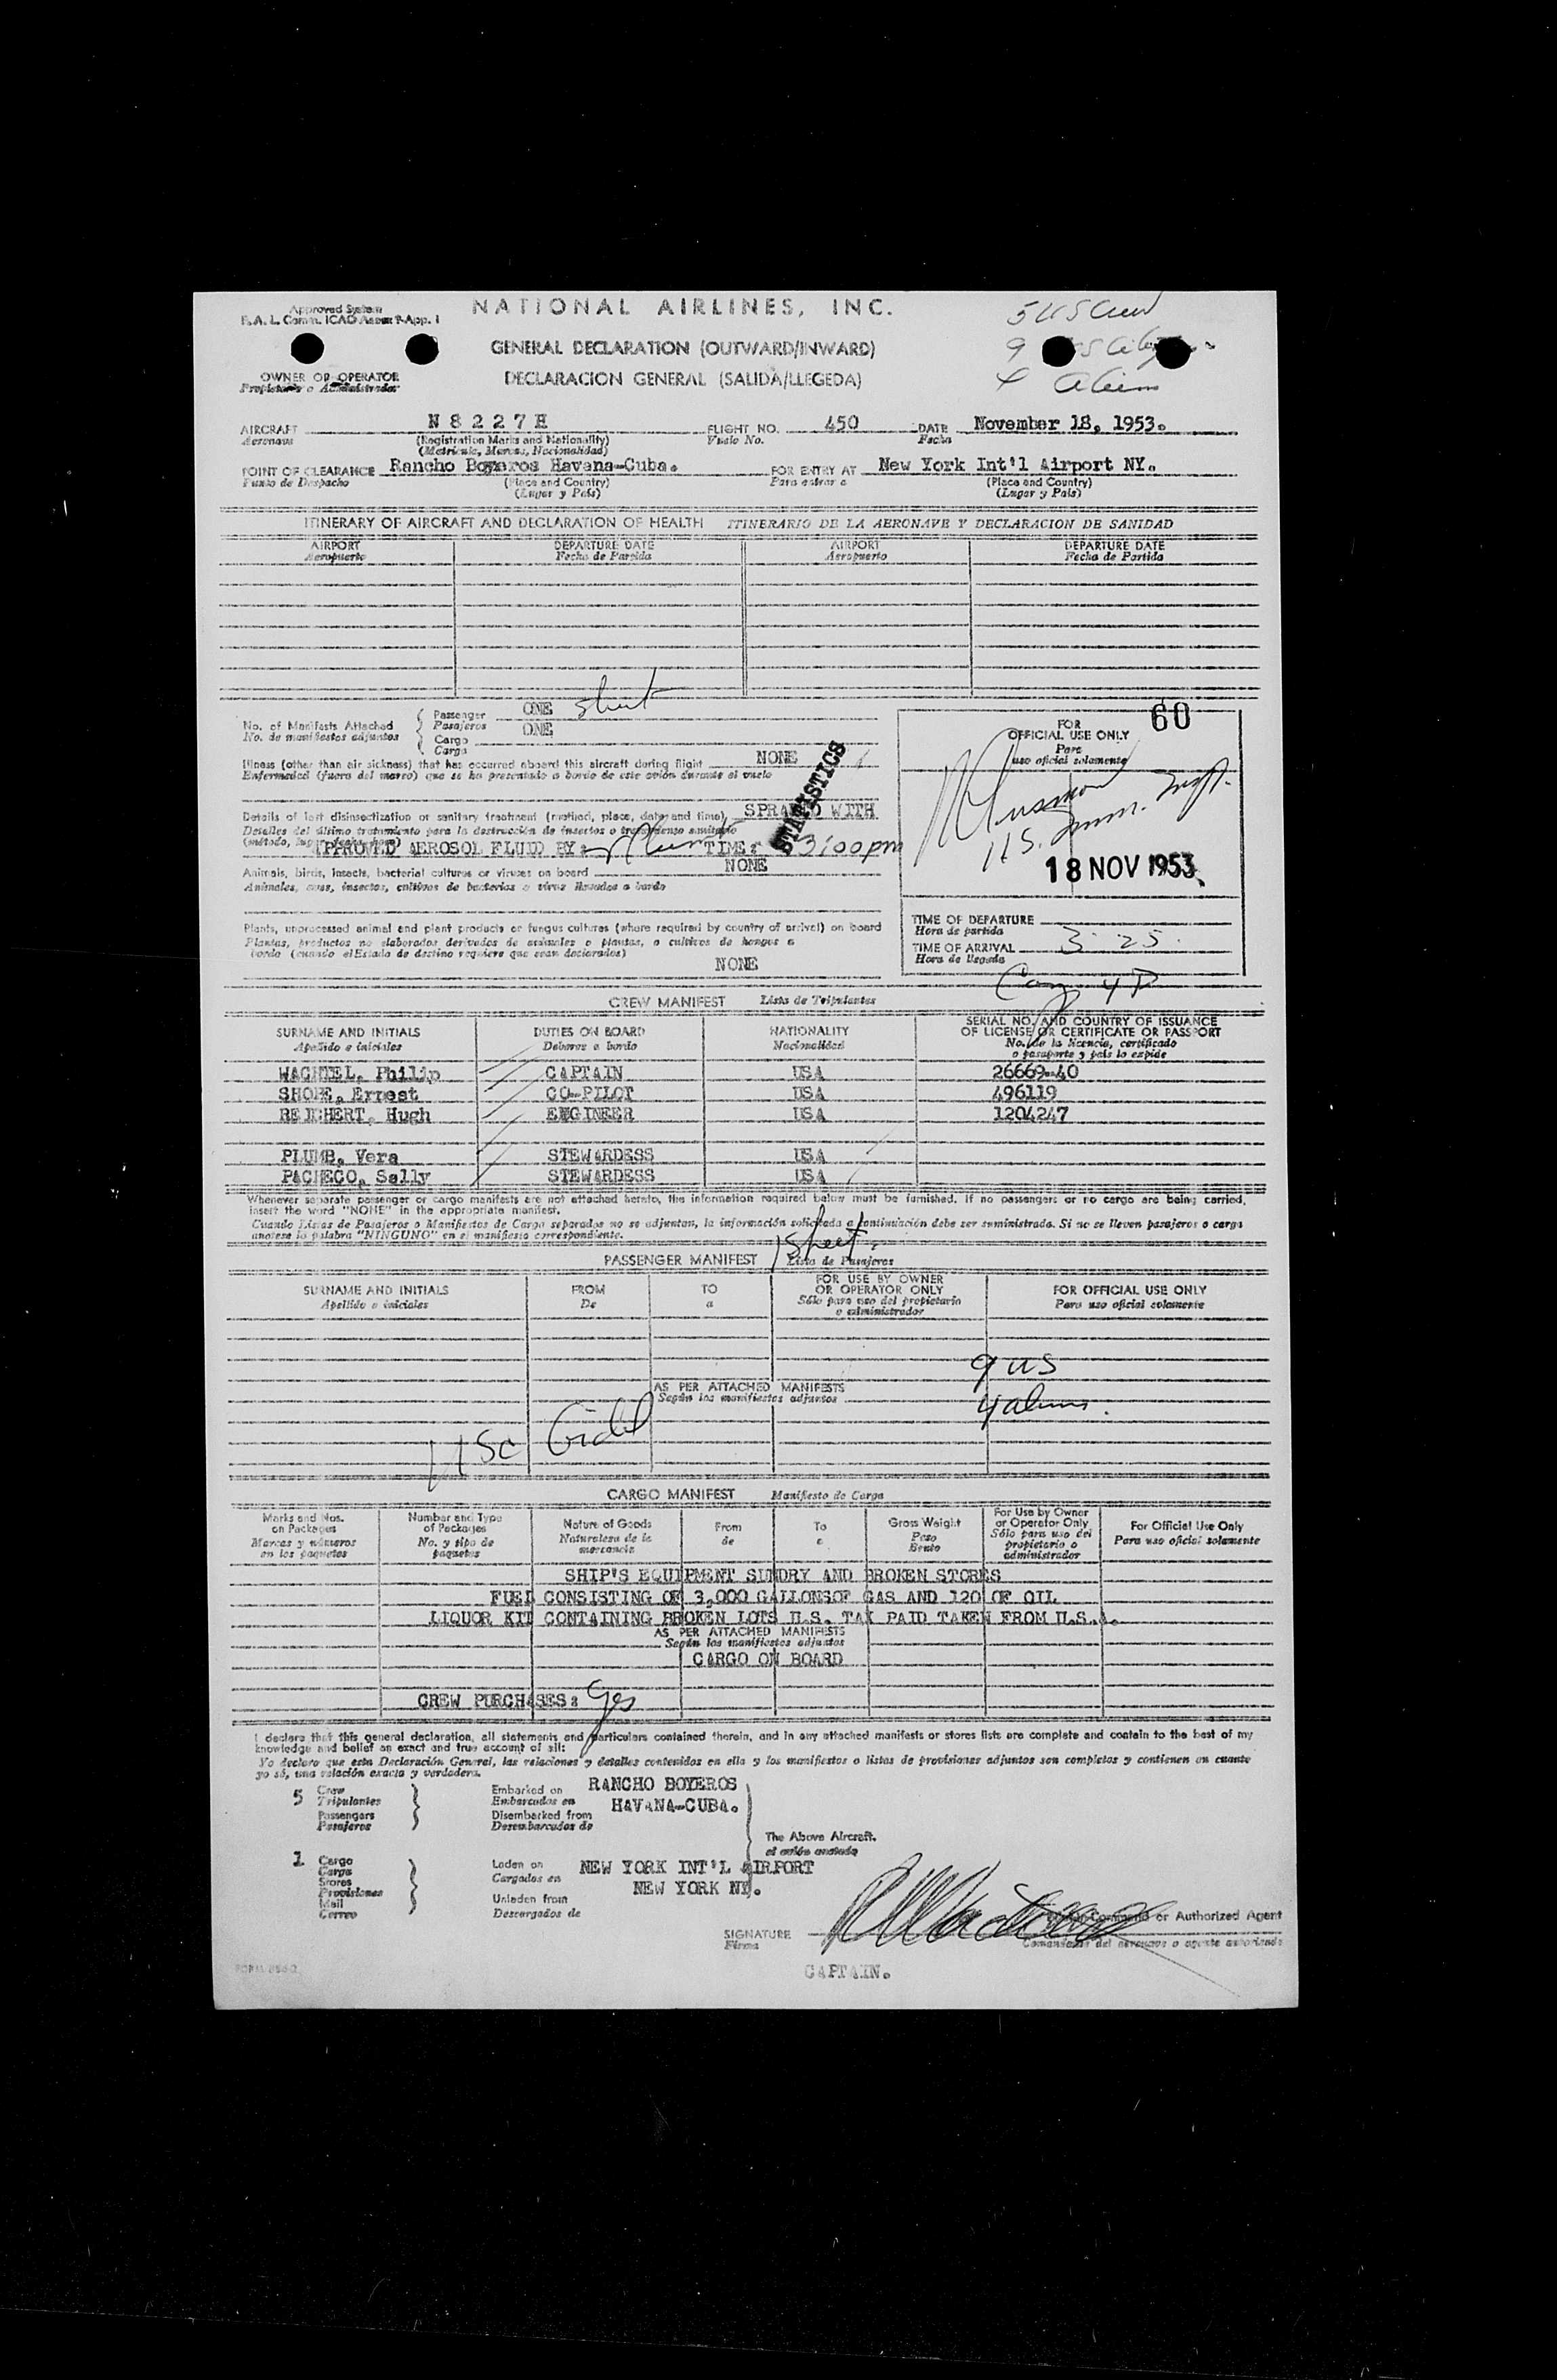 Approved System
NATIONAL AIRLINES, INC.
5 US Crew
GENERAL DECLARATION (OUTWARD/INWARD)
9
OWNER OR OPERATOR
DECLARACION GENERAL (SALIDA/LLEGEDA)
4 Aliens
AIRCRAFT N 8 2 2 7 H FLIGHT NO. 450 DATE November 18, 1953.
Aeronave (Registration Marks and Nationality) Vuelo No. Fecha
POINT OF CLEARANCE Rancho Boyeros Havana-Cuba. FOR ENTRY AT New York Int'l Airport NY.
Punto de Despacho (Place and Country) Para entrar a (Place and Country)
(Lugar y País) (Lugar y País)
ITINERARY OF AIRCRAFT AND DECLARATION OF HEALTH ITINERARIO DE LA AERONAVE Y DECLARACION DE SANIDAD
AIRPORT DEPARTURE DATE AIRPORT DEPARTURE DATE
Aeropuerto Fecha de Partida Aeropuerto Fecha de Partida
No. of Manifests Attached Passenger ONE sheet
No. de manifiestos adjuntos Pasajeros ONE
Cargo
Carga
60
FOR
OFFICIAL USE ONLY
Para
uso oficial solamente
Illness (other than air sickness) that has occurred aboard this aircraft during flight NONE
Enfermedad (fuera del mareo) que se ha presentado a bordo de este avión durante el vuelo
STATISTICS
Details of last disinsectization or sanitary treatment (method, place, date and time) SPRAYED WITH
Detalles del último tratamiento para la destrucción de insectos o tratamiento sanitario
APPROVED AEROSOL FLUID BY: TIME: 3:00pm
U.S. Imm. Insp.
18 NOV 1953
Animals, birds, insects, bacterial cultures or viruses on board NONE
Animales, aves, insectos, cultivos de bacterias o virus llevados a bordo
Plants, unprocessed animal and plant products or fungus cultures (where required by country of arrival) on board
Plantas, productos no elaborados derivados de animales o plantas, o cultivos de hongos a
bordo (cuando el Estado de destino requiere que sean declarados)
NONE
TIME OF DEPARTURE
Hora de partida
TIME OF ARRIVAL 3 25
Hora de llegada
CREW MANIFEST Lista de Tripulantes
SURNAME AND INITIALS DUTIES ON BOARD NATIONALITY SERIAL NO. AND COUNTRY OF ISSUANCE
OF LICENSE OR CERTIFICATE OR PASSPORT
Apellido e iniciales Deberes a bordo Nacionalidad No. de la licencia, certificado
o pasaporte y país lo expide
WACHTEL, Philip CAPTAIN USA 26669-40
SHOPE, Ernest CO-PILOT USA 496119
REICHERT, Hugh ENGINEER USA 1204247
PLUMB, Vera STEWARDESS USA
PACHECO, Sally STEWARDESS USA
Whenever separate passenger or cargo manifests are not attached hereto, the information required below must be furnished. If no passengers or no cargo are being carried,
insert the word "NONE" in the appropriate manifest.
Cuando Listas de Pasajeros o Manifiestos de Carga separados no se adjuntan, la información solicitada a continuación debe ser suministrada. Si no se lleven pasajeros o carga
anotese la palabra "NINGUNO" en el manifiesto correspondiente.
PASSENGER MANIFEST 1 Sheet. Lista de Pasajeros
SURNAME AND INITIALS FROM TO FOR USE BY OWNER
OR OPERATOR ONLY FOR OFFICIAL USE ONLY
Apellido e iniciales De a Sólo para uso del propietario
o administrador Para uso oficial solamente
9 US
AS PER ATTACHED MANIFESTS
Según los manifiestos adjuntos
4 aliens.
CARGO MANIFEST Manifiesto de Carga
Marks and Nos.
on Packages
Marcas y números
en los paquetes
Number and Type
of Packages
No. y tipo de
paquetes
Nature of Goods
Naturaleza de la
mercancia
From
de
To
a
Gross Weight
Peso
Bruto
For Use by Owner
or Operator Only
Sólo para uso del
propietario o
administrador
For Official Use Only
Para uso oficial solamente
SHIP'S EQUIPMENT SUNDRY AND BROKEN STORES
FUEL CONSISTING OF 3,000 GALLONSOF GAS AND 120 OF OIL
LIQUOR KIT CONTAINING BROKEN LOTS U.S. TAX PAID TAKEN FROM U.S.A.
AS PER ATTACHED MANIFESTS
Según los manifiestos adjuntos
CARGO ON BOARD
CREW PURCHASES: Yes
I declare that this general declaration, all statements and particulars contained therein, and in any attached manifests or stores lists are complete and contain to the best of my
knowledge and belief an exact and true account of all:
Yo declaro que esta Declaración General, las relaciones y detalles contenidos en ella y los manifiestos o listas de provisiones adjuntos son completos y contienen en cuanto
yo sé, una relación exacta y verdadera.
5 Crew
Tripulantes
Passengers
Pasajeros
Embarked on RANCHO BOYEROS
Embarcados en HAVANA-CUBA.
Disembarked from
Desembarcados de
The Above Aircraft.
el avión anotado
1 Cargo
Carga
Stores
Provisiones
Mail
Correo
Laden on NEW YORK INT'L AIRPORT
Cargados en NEW YORK NY.
Unladen from
Descargados de
SIGNATURE
Firma
or Authorized Agent
Comandante del aeronave o agente autorizado
CAPTAIN.